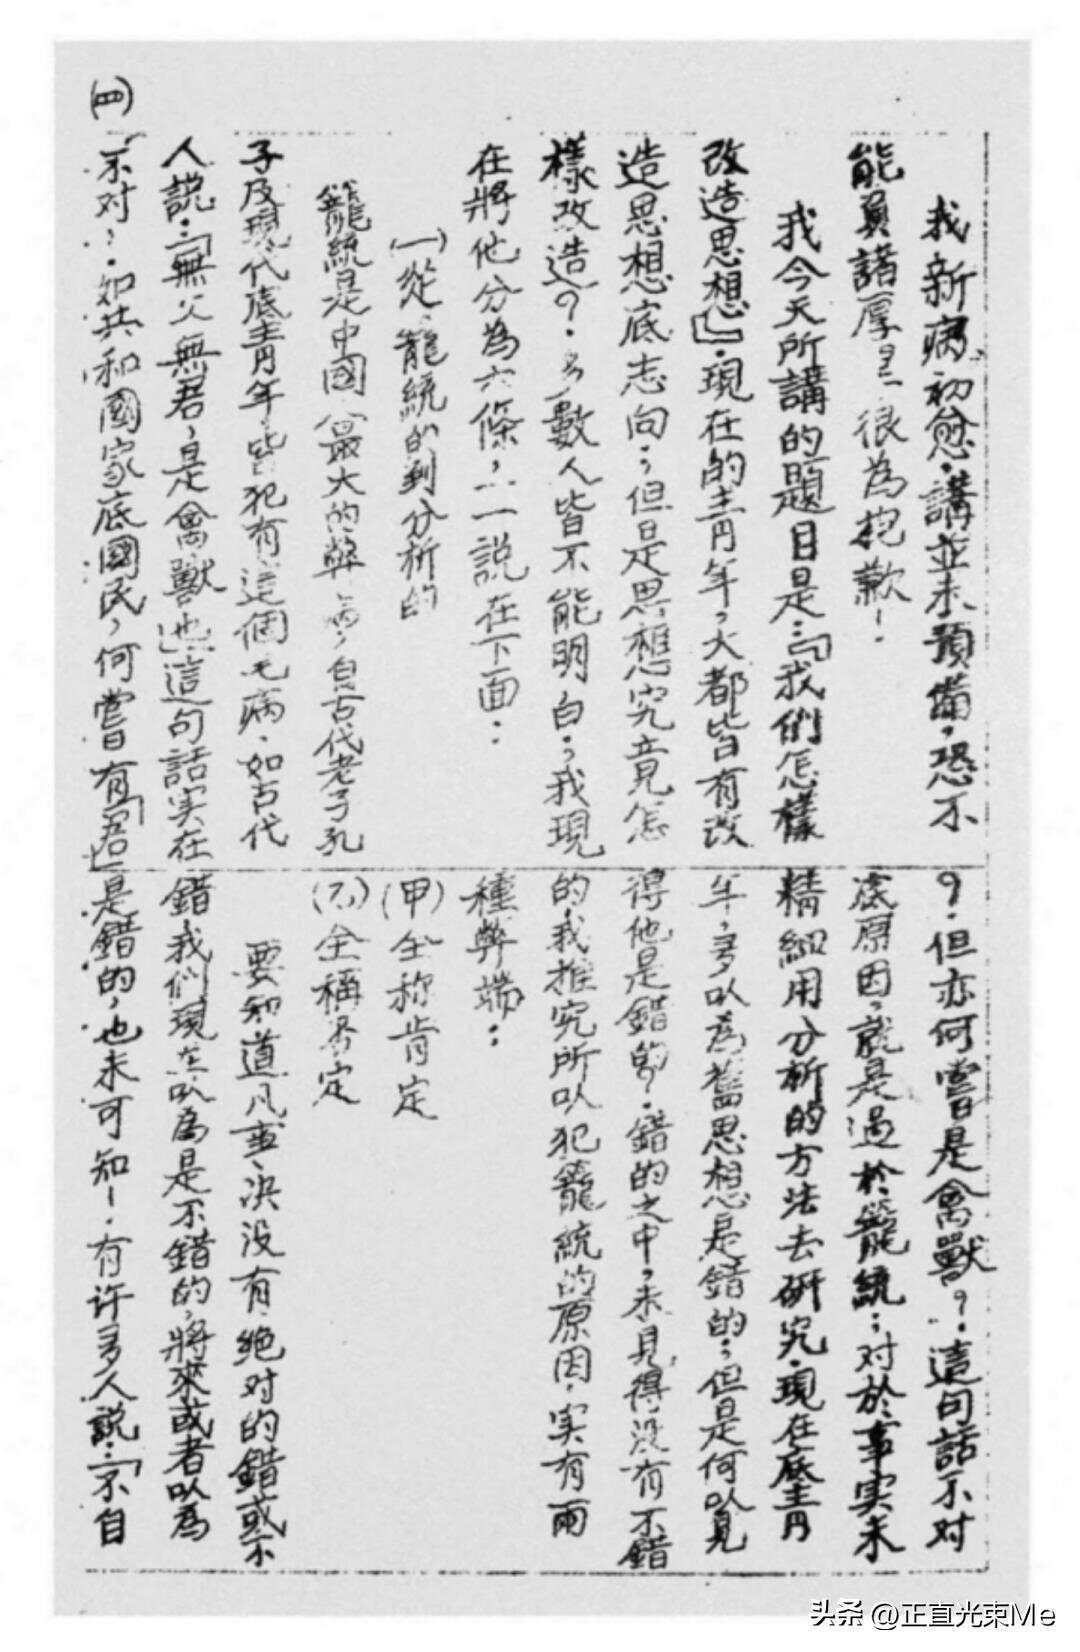 我新病初愈,講並未預備,恐不
能負諸厚望,很為抱歉!.
我今天所講的題目是:「我們怎樣
改造思想」.現在的青年,大都皆有改
造思想底志向;但是思想究竟怎
樣改造?.多數人皆不能明白.;我現
在將他分為六條,一一說在下面:
(一)從籠統的到分析的
籠統是中國最大的弊病,自古代老子孔
子及現代底青年,皆犯有這個毛病.如古代
人説:「無父無君,是禽獸也」這句話实在
不对:.如共和國家底國民,何嘗有「君」
?.但亦何嘗是禽獸?.這句話不对
底原因,就是過於籠統;对於事実未
精細用分析的方法去研究.現在底青
年,多以為舊思想是錯的;但是何以見
得他是錯的?.錯的之中,未見得没有不錯
的,我推究所以犯籠統的原因,実有兩
種弊端:
(甲)全称肯定
(乙)全稱否定
要知道凡事,决没有绝对的錯或不
錯,我們現在以為是不錯的,將來或者以為
是錯的,也未可知!.有许多人説:「不自
(四)
头条 @正直光束Me